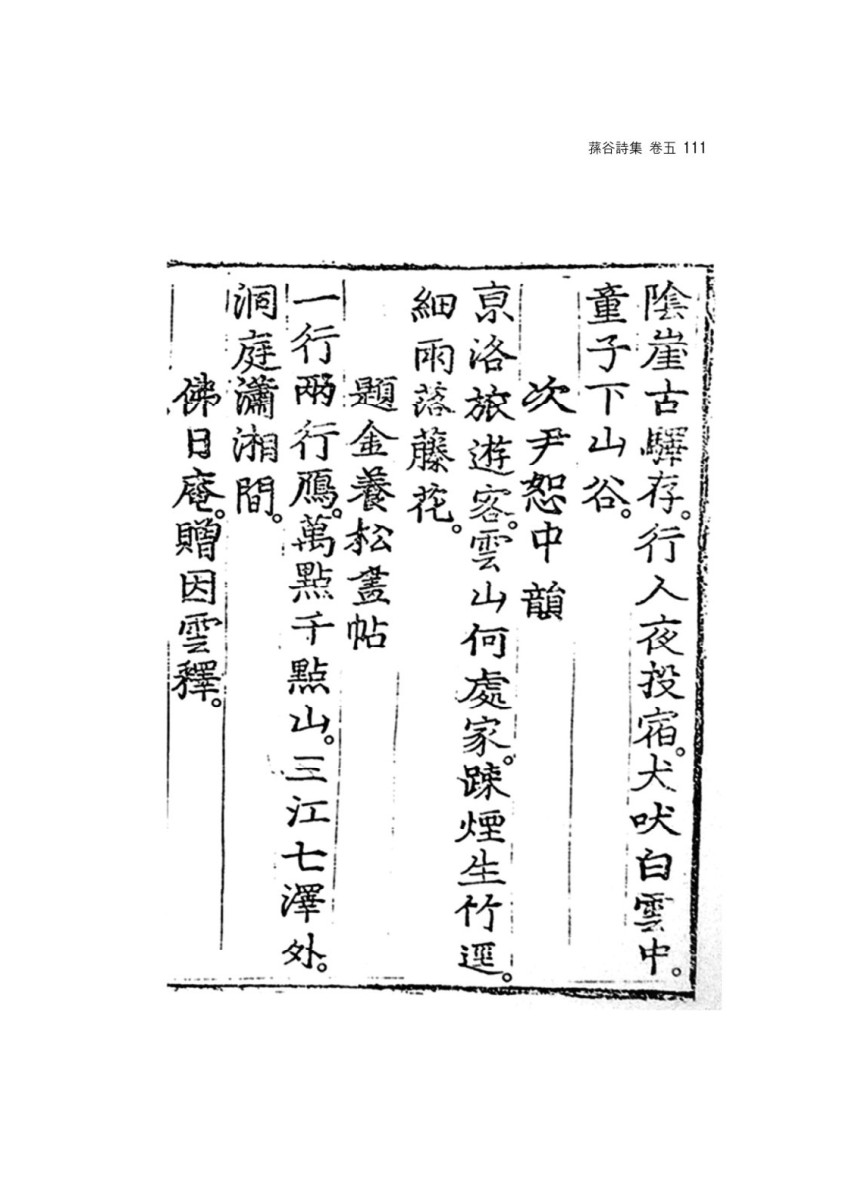 蓀谷詩集 卷五 111
陰崖古驛存。行人夜投宿。犬吠白雲中。
童子下山谷。
次尹恕中韻
亰洛旅遊客。雲山何處家。踈煙生竹逕。
細雨落藤花。
題金養松畫帖
一行兩行鴈。萬點千點山。三江七澤外。
洞庭瀟湘間。
佛日庵。贈因雲釋。